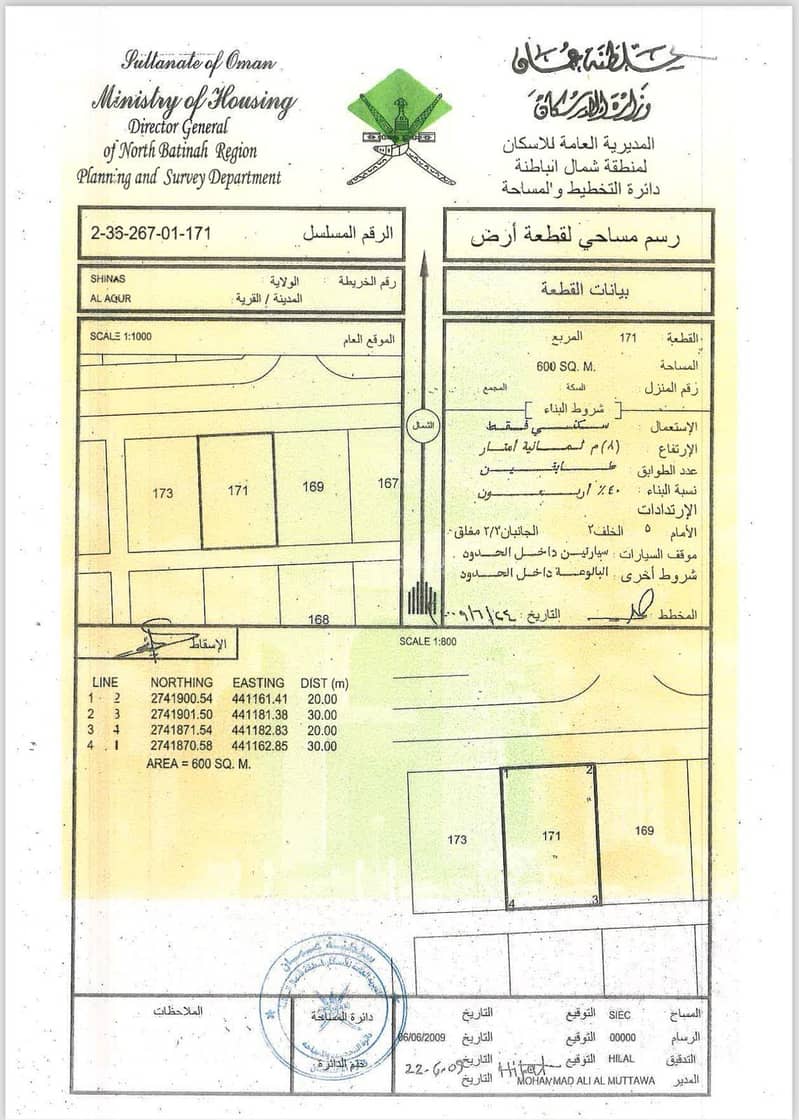 Sultanate of Oman
Ministry of Housing
Director General
of North Batinah Region
Planning and Survey Department
سلطنة عمان
وزارة الاسكان
المديرية العامة للاسكان
لمنطقة شمال الباطنة
دائرة التخطيط والمساحة
2-36-267-01-171 الرقم المسلسل
رسم مساحي لقطعة أرض
SHINAS الولاية رقم الخريطة :
AL AQUR المدينة / القرية :
بيانات القطعة
SCALE 1:1000 الموقع العام
173
171
169
167
168
الشمال
القطعة : 171 المربع :
المساحة 600 SQ. M.
رقم المنزل : السكة المجمع
شروط البناء
الإستعمال : سكني فقط
الإرتفاع (٨) م ثمانية أمتار
عدد الطوابق : طابقين
نسبة البناء : ٤٠٪ أربعون
الإرتدادات
الأمام ٥ الخلف ٣ الجانبان ٢/٣ مغلق
موقف السيارات : سيارتين داخل الحدود
شروط أخرى : البالوعة داخل الحدود
المخطط : التاريخ :
الإسقاط
SCALE 1:800
LINE NORTHING EASTING DIST (m)
1 - 2 2741900.54 441161.41 20.00
2 3 2741901.50 441181.38 30.00
3 4 2741871.54 441182.83 20.00
4 . 1 2741870.58 441162.85 30.00
AREA = 600 SQ. M.
1
2
173
171
169
4
3
الملاحظات
دائرة المساحة
ختم الدائرة
المساح SIEC التوقيع التاريخ
الرسام 00000 التوقيع التاريخ 06/06/2009
التدقيق HILAL التوقيع Hilal التاريخ 22-6-09
المدير MOHAMMAD ALI AL MUTTAWA التاريخ